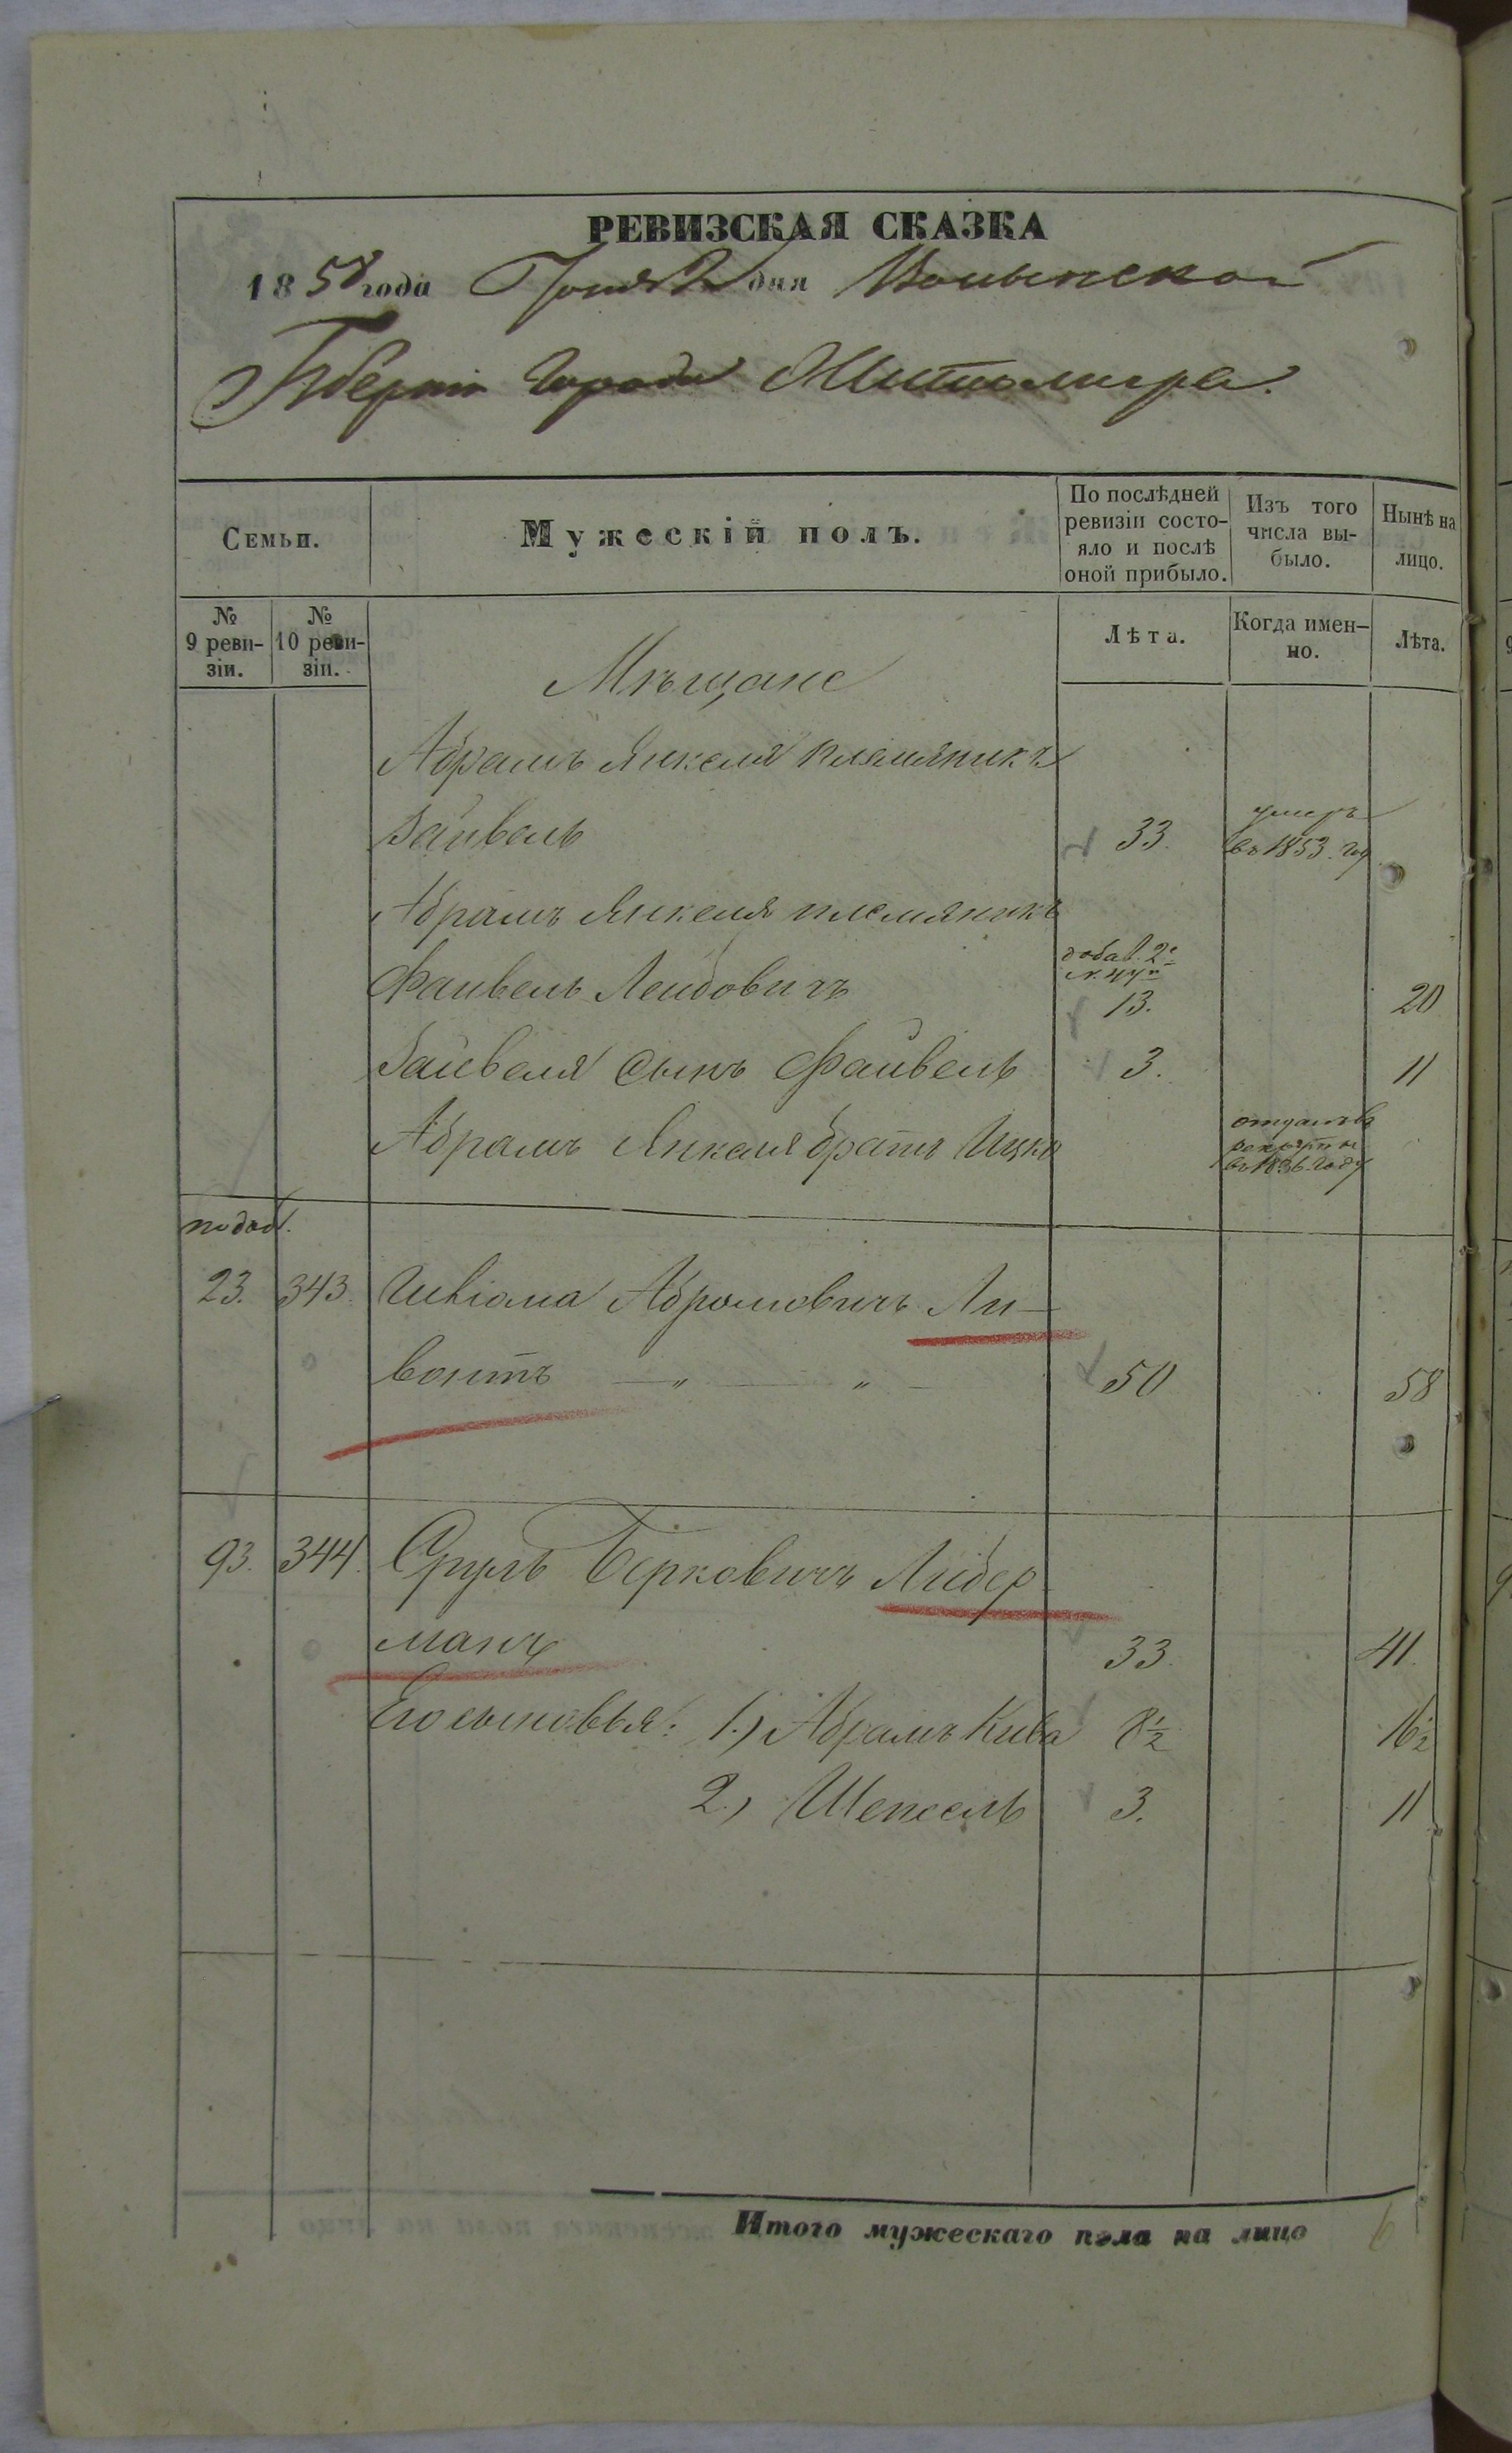 РЕВИЗСКАЯ СКАЗКА
1858 года Іюня 2 дня Волынской
Губерніи Города Житомира.
Семьи.
Мужескій полъ.
По послѣдней ревизіи состо-яло и послѣ оной прибыло.
Изъ того числа вы-было.
Нынѣ на лицо.
№ 9 реви-зіи.
№ 10 реви-зіи.
Лѣта.
Когда имен-но.
Лѣта.
Мѣщане
Абрамъ Янкеля племяникъ
Вайвель 33. умеръ въ 1853. году
Абрамъ Янкеля племяникъ
добав. 2й
Файвель Лейбовичъ 13. 20
Вайвеля сынъ Файвель 3. 11
Абрамъ Янкеля братъ Ицко отданъ въ рекруты въ 1836 году
по доб.
23. 343. Абрамовичъ Ли-
вонтъ — „ — „ — 50 58
93. 344. Сруль Берковичъ Либер-
манъ 33. 41.
Его сыновья: 1.) Абрамъ Кива 8½ 16½
2.) Шепсель 3. 11
Итого мужескаго пола на лицо 6